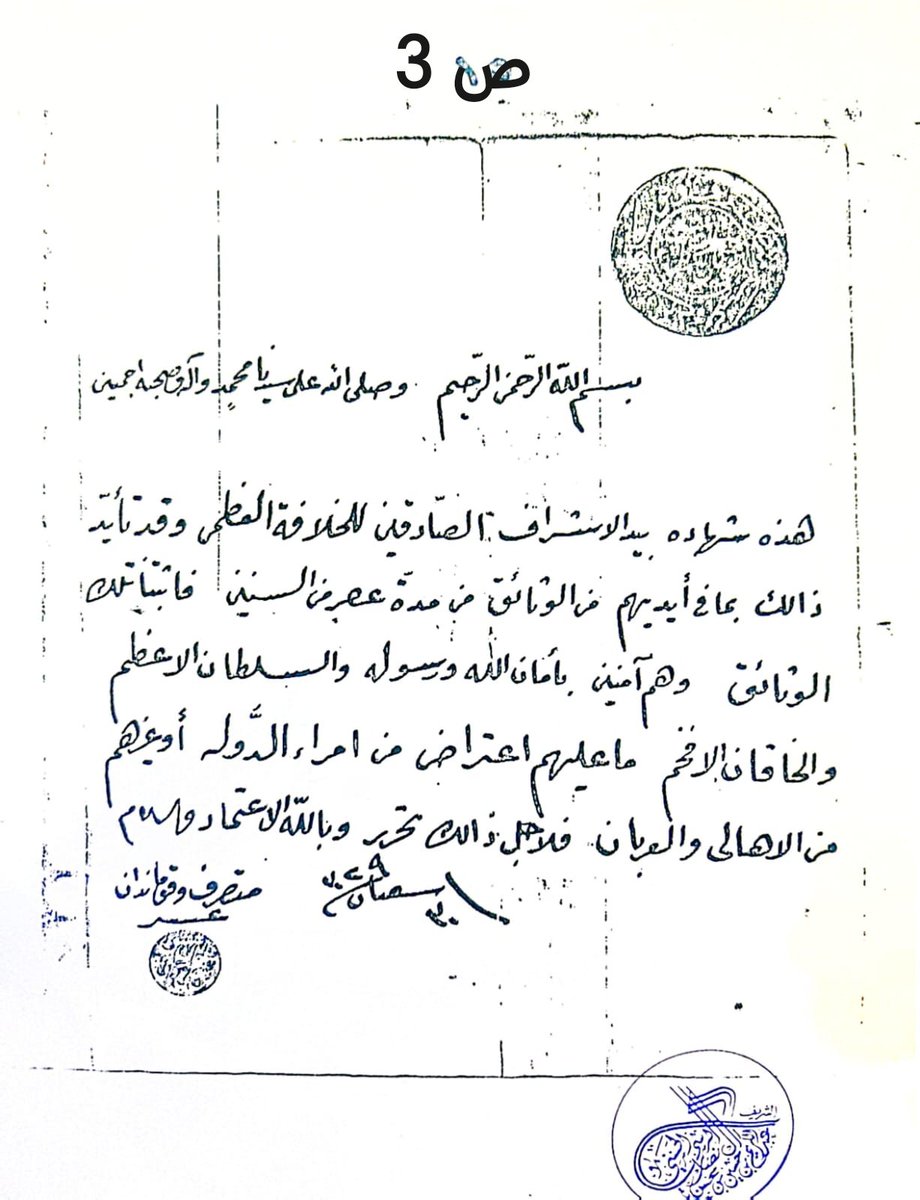 ص 3
بسم الله الرّحمن الرّحيم وصلى الله على سيدنا محمدٍ وآله وصحبه اجمعين
هذه شهاده بيد الاشراف الصّادقين للخلافة العظمى وقد تأيّد
ذالك بما في أيديهم من الوثائق من مدة عصر من السنين فاثبتنا تلك
الوثائق وهم آمنين بأمان الله ورسوله والسلطان الاعظم
والخاقان الافخم ما عليهم اعتراض من امراء الدَّوله أو غيرهم
من الاهالى والعربان فلاجل ذالك تحرر وبالله الاعتماد والسلام
متصرف وقومندان
عسير
الشريف